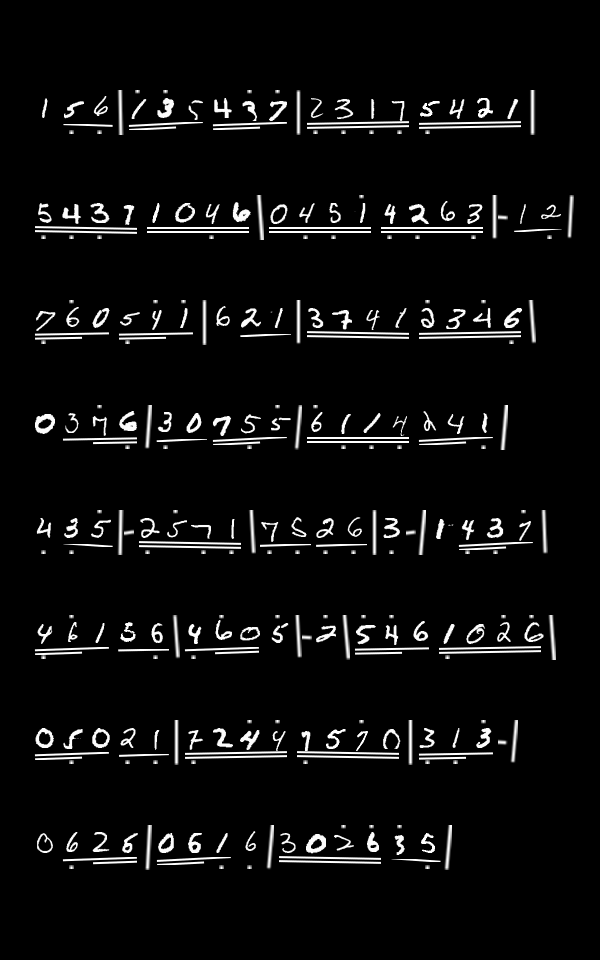 1 5 6 | 1 3 5 4 3 7 | 2 3 1 7 5 4 2 1 |
5 4 3 7 1 0 4 6 | 0 4 5 1 4 2 6 3 | - 1 2 |
7 6 0 5 4 1 | 6 2 1 | 3 7 4 1 2 3 4 6 |
0 3 7 6 | 3 0 7 5 5 | 6 1 1 4 2 4 1 |
4 3 5 | - 2 5 7 1 | 7 5 2 6 | 3 - | 1 4 3 7 |
4 6 1 3 6 | 4 6 0 5 | - 2 | 5 4 6 1 0 2 6 |
0 5 0 2 1 | 7 2 4 4 7 5 7 0 | 3 1 3 - |
0 6 2 6 | 0 6 1 6 | 3 0 2 6 3 5 |